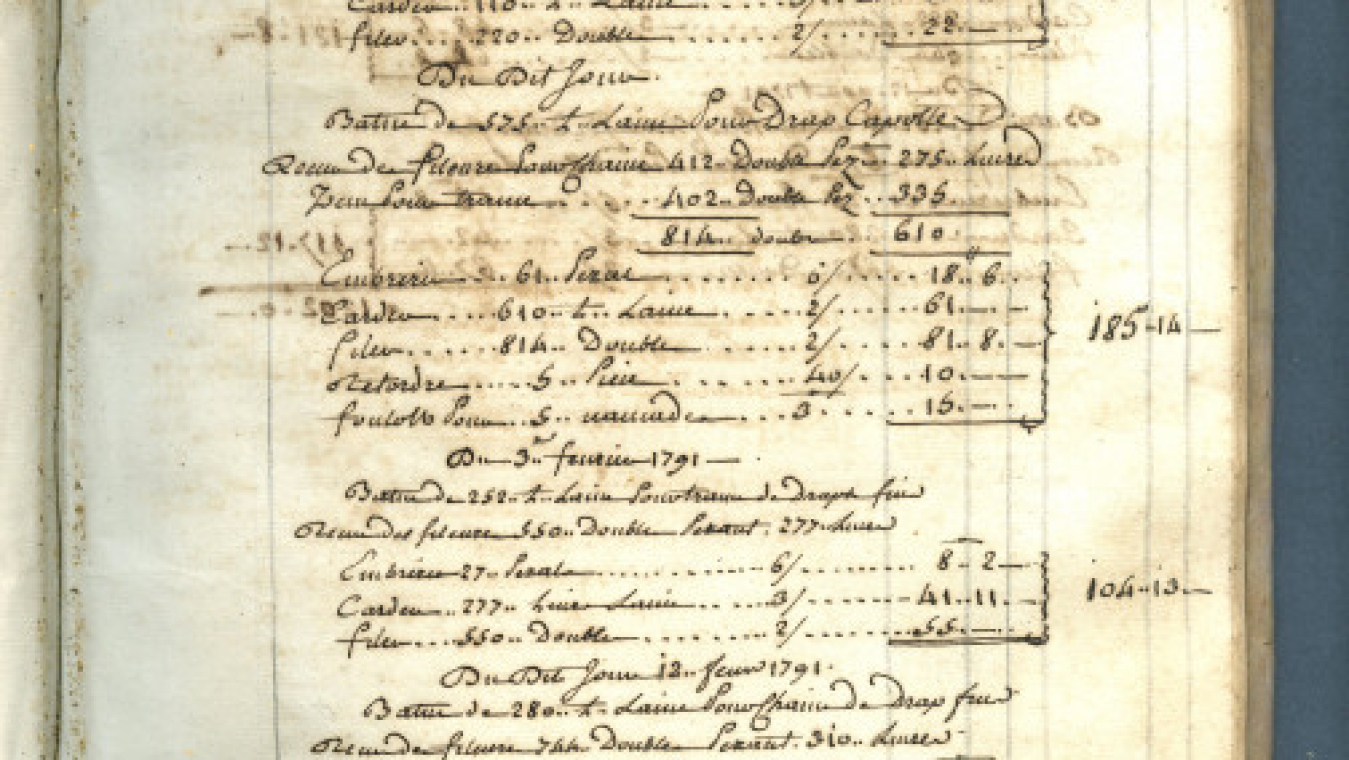 Carder 110 .. L. Laine
filer .... 220 .. Double ...... 2/ .... 22. —
Du Dit Jour.
Batue de 575 .. L. Laine Pour Drap Capotte
Recue de fileure Pour Chaine 412 .. Double 275 .. Livres
Pour trame .... 402 .. Double .. 335
814 .. double .. 610
61 .. .... 6/ .... 18 .. 6. —
Carder .... 610 .. L. Laine .... 2/ .... 61. — 185-14 —
filer ..... 814 .. Double .... 2/ .... 81 .. 8. —
Retordre .... 5 .. .... 40/ .... 10. —
Pour .. 5 .. .... 3. .... 15. —
Du 3e. fevrier 1791 —
Batue de 252 .. L. Laine Pour trame de draps fins
Recue des fileure 550 .. Double Pezant. 277. Livres
27 .. .... 6/ .... 8 - 2 —
Carder .. 277 .. Livres Laine .... 3/ .... 41 .. 11. — 104 .. 13. —
filer .... 550 .. Double .... 2/ .... 55. —
Du Dit Jour 12. fevr 1791.
Batue de 280 .. L. Laine Pour Chaine de drap fins
Recue de fileure 744 .. Double Pezant. 310 .. Livres